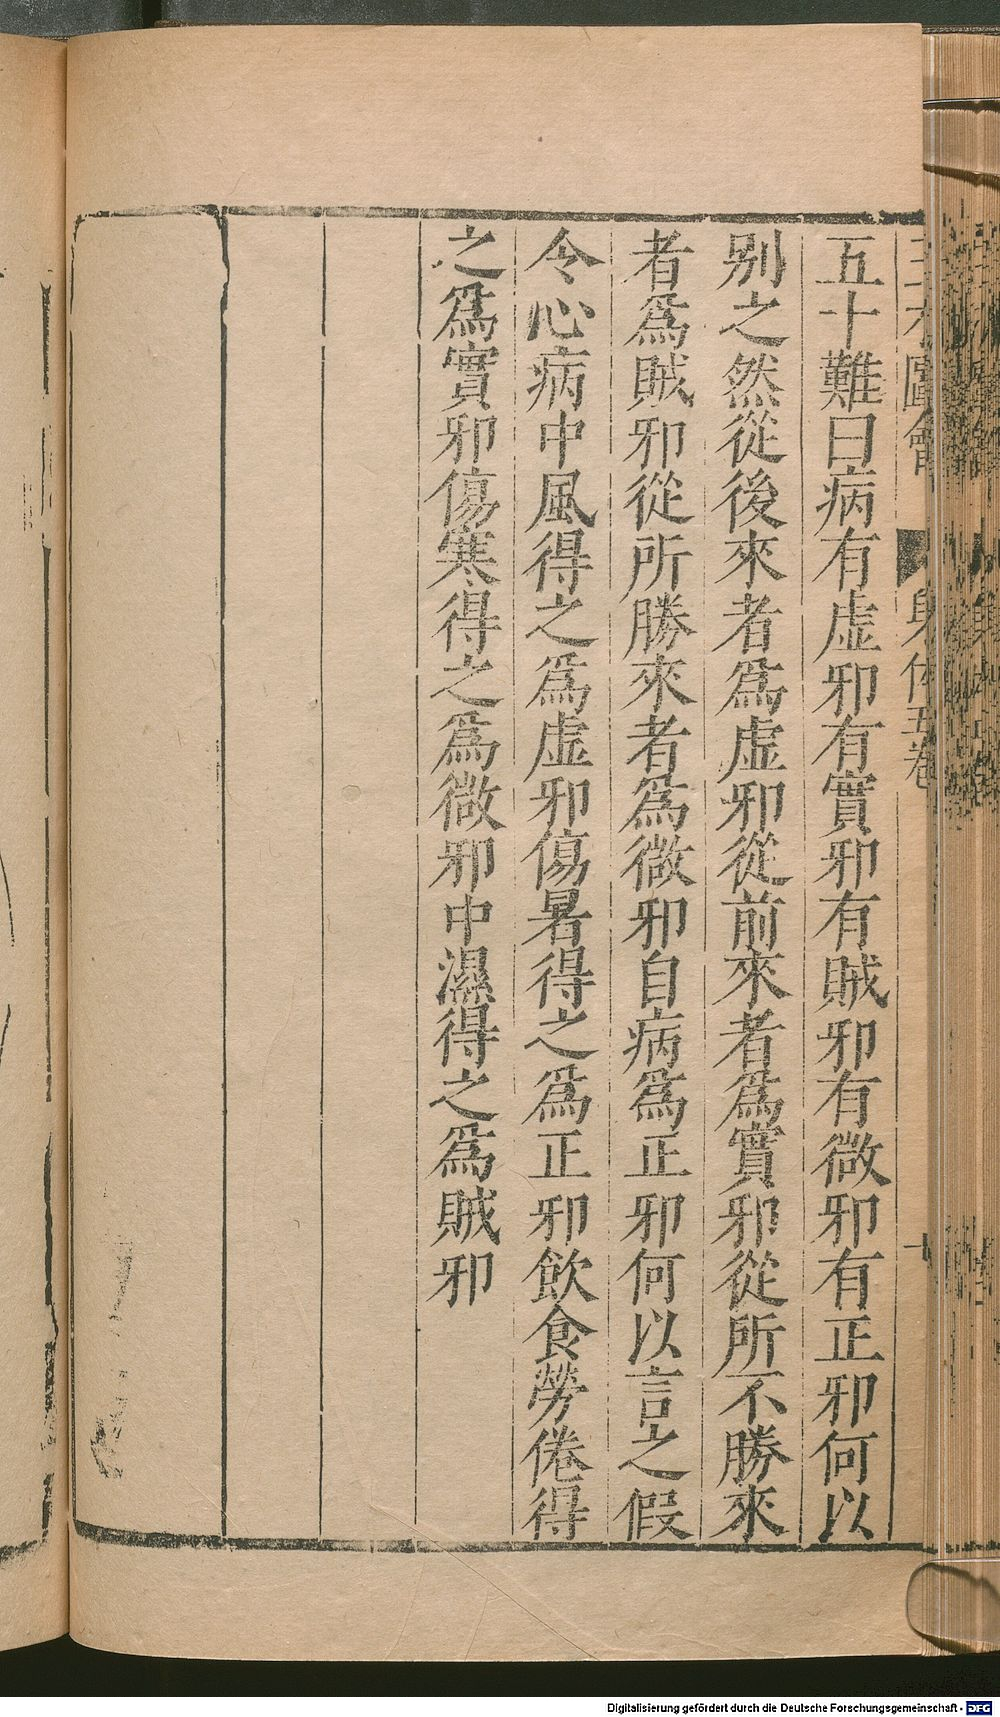 五十難曰病有虚邪有實邪有賊邪有微邪有正邪何以
别之然從後來者爲虚邪從前來者爲實邪從所不勝來
者爲賊邪從所勝來者爲微邪自病爲正邪何以言之假
令心病中風得之爲虚邪傷暑得之爲正邪飲食勞倦得
之爲實邪傷寒得之爲微邪中濕得之爲賊邪
Digitalisierung gefördert durch die Deutsche Forschungsgemeinschaft - DFG